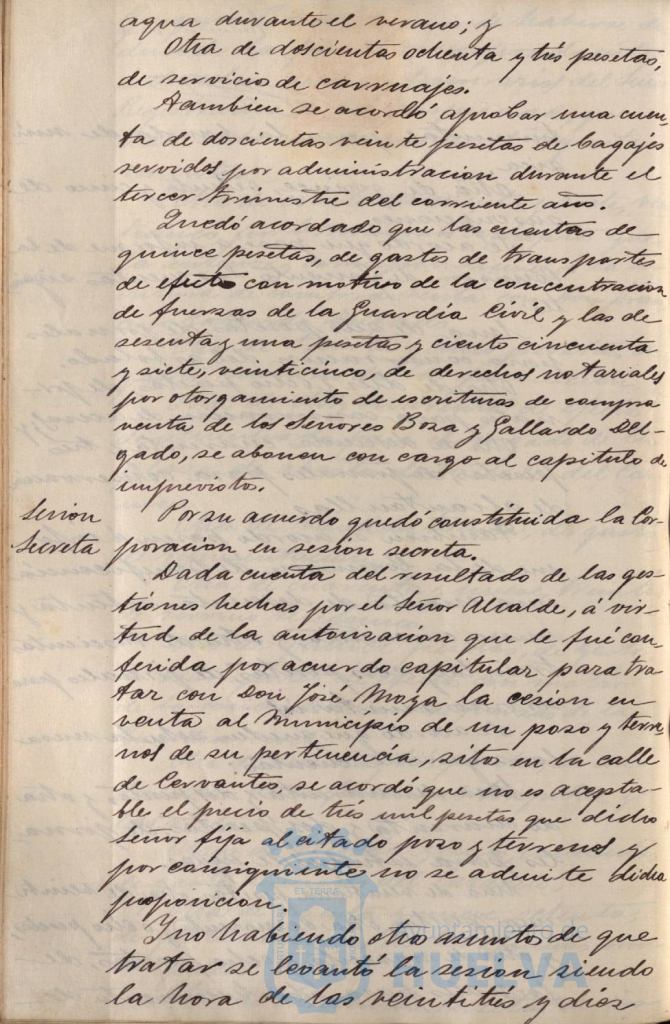 agua durante el verano; y
Otra de doscientas ochenta y trés pesetas,
de servicios de carruajes.
Tambien se acordó aprobar una cuen-
ta de doscientas veinte pesetas de bagajes
servidos por administracion durante el
tercer trimestre del corriente año.
Quedó acordado que las cuentas de
quince pesetas, de gastos de transportes
de efecto con motivo de la concentracion
de fuerzas de la Guardia Civil y las de
sesenta y una pesetas y ciento cincuenta
y siete, veinticinco, de derechos notariales
por otorgamiento de escrituras de compra
venta de los Señores Boza y Gallardo Del-
gado, se abonen con cargo al capitulo de
imprevistos.
Sesion
Secreta
Por su acuerdo quedó constituida la Cor-
poracion en sesión secreta.
Dada cuenta del resultado de las ges-
tiones hechas por el Señor Alcalde, á vir-
tud de la autorizacion que le fué con-
ferida por acuerdo capitular para tra-
tar con Don José Moya la cesion en
venta al Municipio de un pozo y terre-
nos de su pertenencia, sito en la calle
de Cervantes, se acordó que no es acepta-
ble el precio de trés mil pesetas que dicho
Señor fija al citado pozo y terrenos y
por consiguiente no se admite dicha
proposicion.
Y no habiendo otro asuntos de que
tratar se levantó la sesion siendo
la hora de las veintitrés y diez
Ayuntamiento de
HUELVA